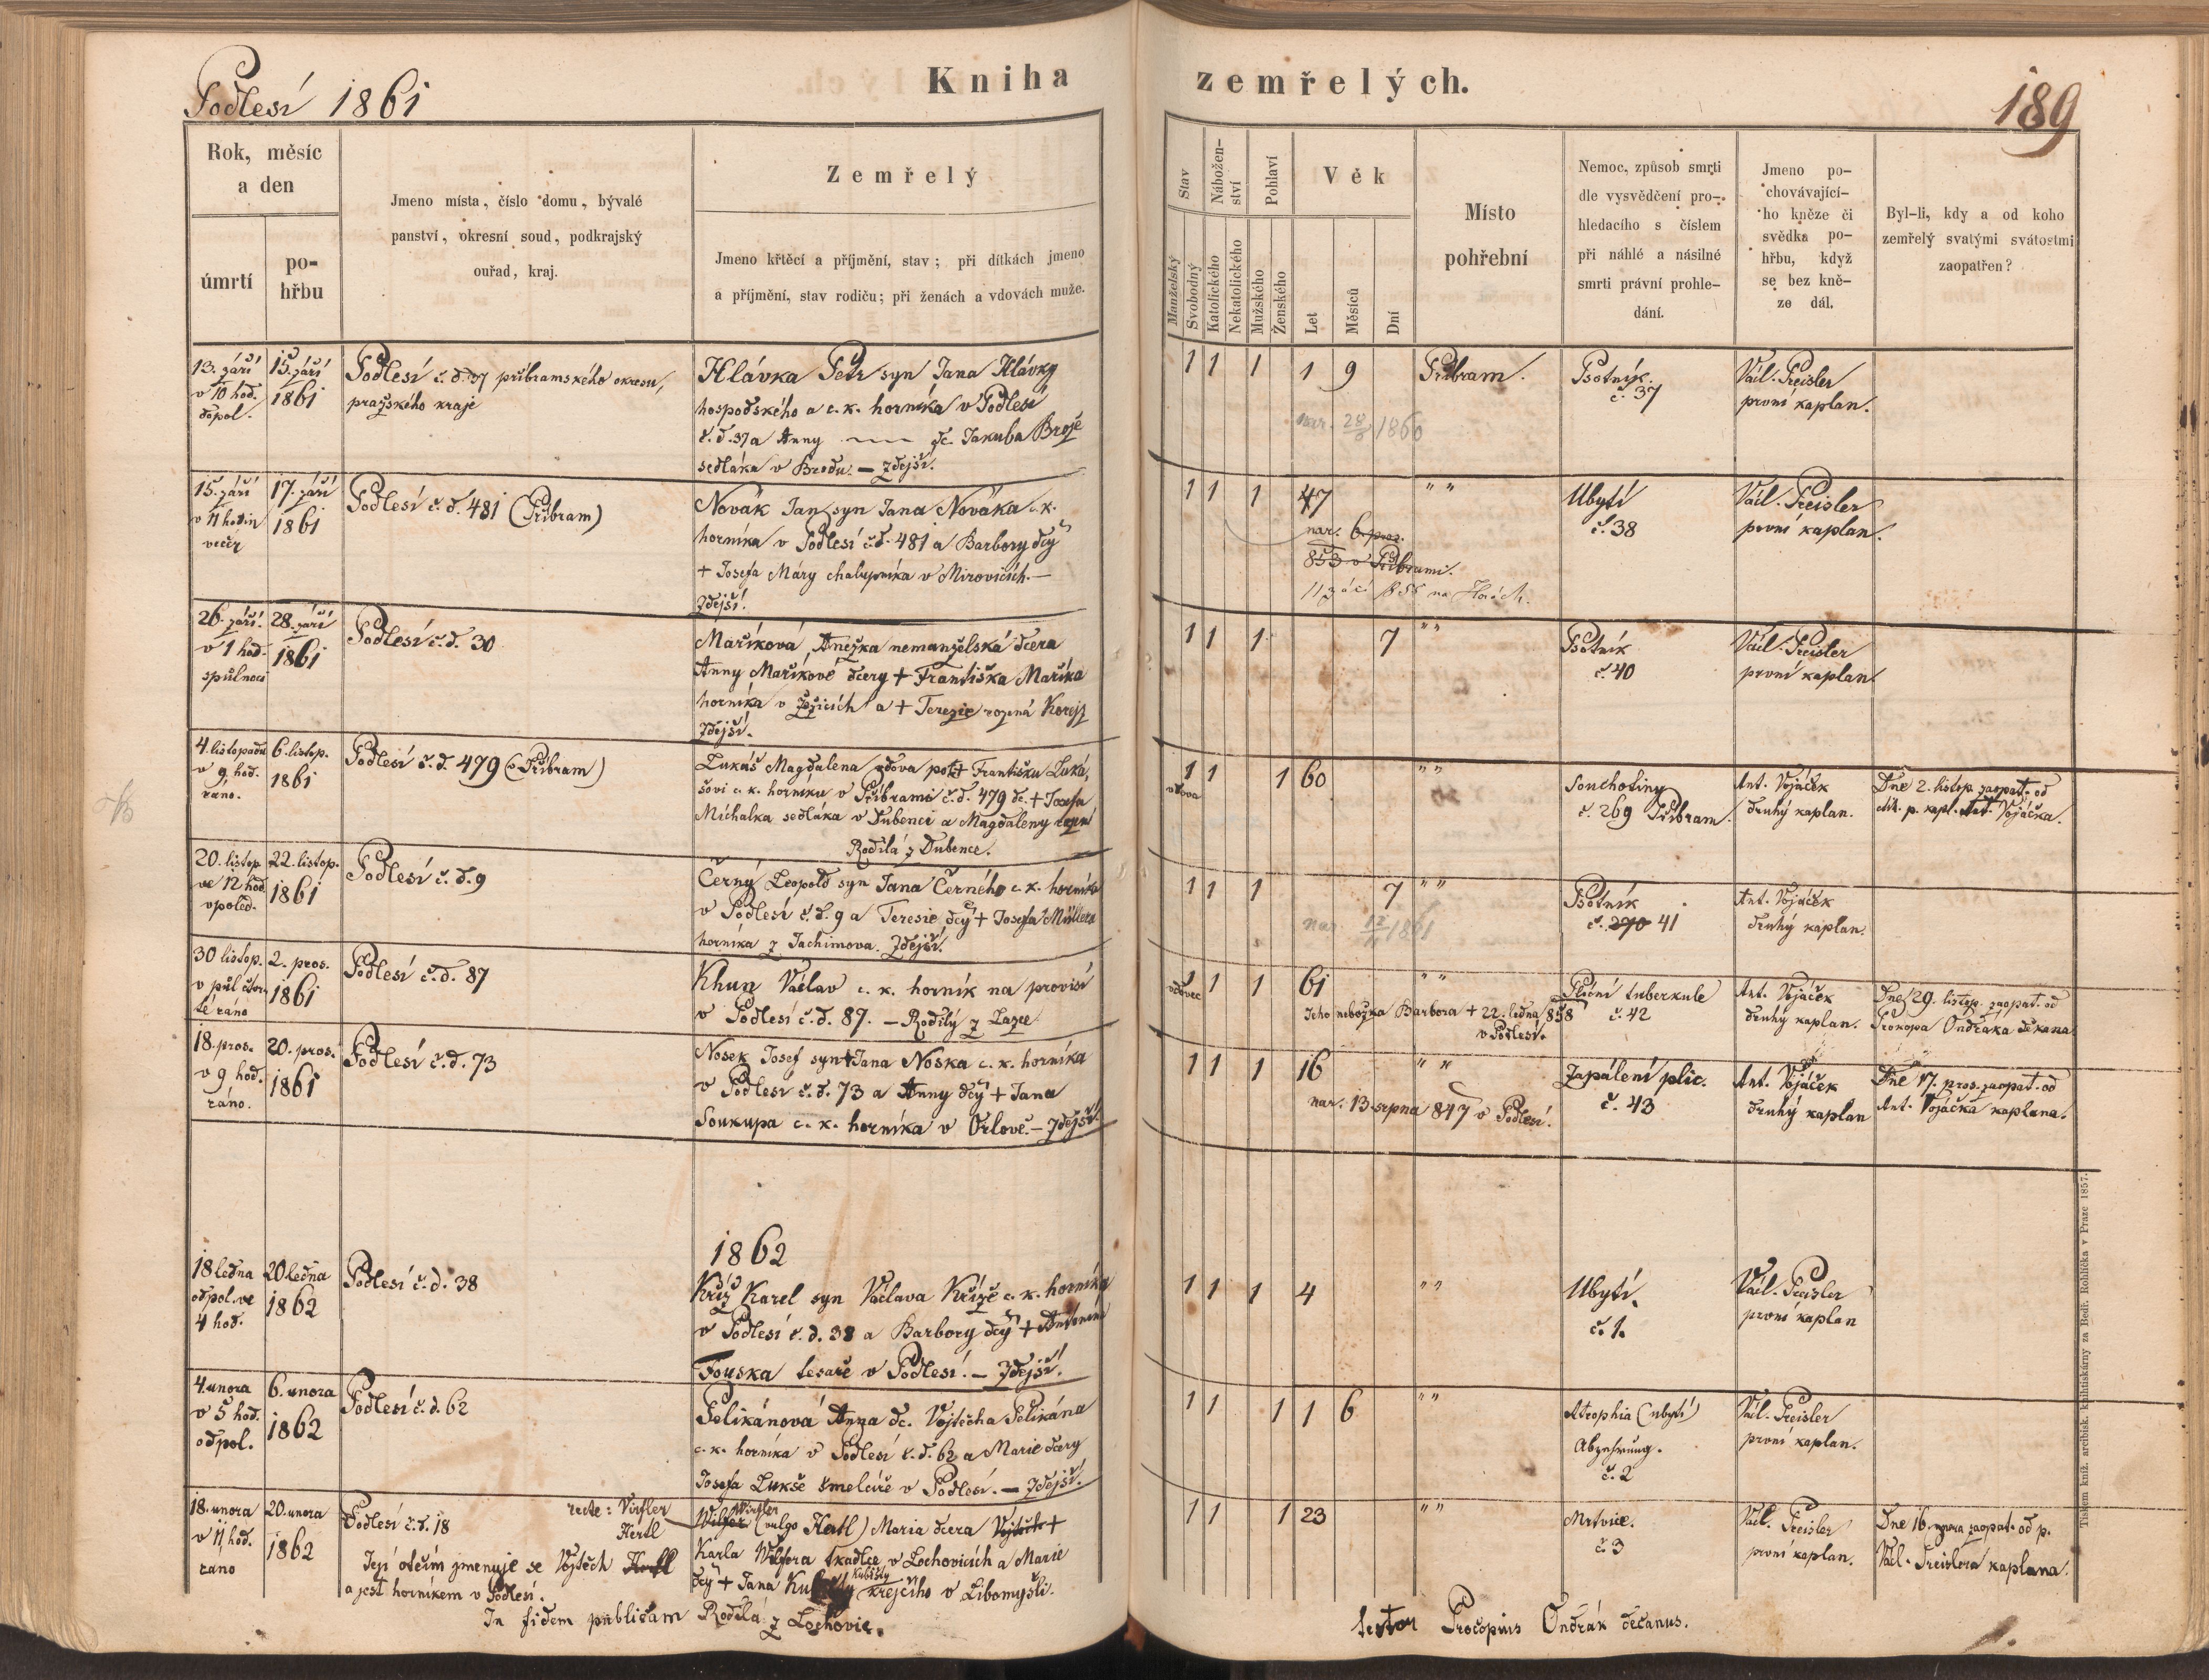 Podlesí 1861
Kniha zemřelých.
189
Rok, měsíc
a den
úmrtí
po-
hřbu
Jmeno místa, číslo domu, bývalé
panství, okresní soud, podkrajský
ouřad, kraj.
Zemřelý
Jmeno křtěcí a příjmění, stav; při dítkách jmeno
a příjmění, stav rodičů; při ženách a vdovách muže.
Stav
Nábožen-
ství
Pohlaví
Věk
Manželský
Svobodný
Katolického
Nekatolického
Mužského
Ženského
Let
Měsíců
Dní
Místo
pohřební
Nemoc, způsob smrti
dle vysvědčení pro-
hledacího s číslem
při náhlé a násilné
smrti právní prohle-
dání.
Jmeno po-
chovávající-
ho kněze či
svědka po-
hřbu, když
se bez kně-
ze dál.
Byl-li, kdy a od koho
zemřelý svatými svátostmi
zaopatřen?
13. září
v 10 hod.
dopol.
15. září
1861
Podlesí č. d. 37 příbramského okresu,
pražského kraje
Hlávka Petr syn Jana Hlávky
hospodského a c. k. horníka v Podlesí
č. d. 37 a Anny dc. Jakuba Brože
sedláka v Brodu. — Zdejší.
1 1 1 1 9
nar. 28/8 1860
Příbram.
Psotník.
č. 37
Václ. Preisler
první kaplan.
15. září
v 11 hodin
večer
17. září
1861
Podlesí č. d. 481 (Příbram)
Novák Jan syn Jana Nováka c. k.
horníka v Podlesí č. d. 481 a Barbory dcy
+ Josefa Máry chalupníka v Mirovicích. —
Zdejší.
1 1 1 47
nar. 6. pros.
853 v Příbrami.
11 září 1855 na Horách.
" "
Ubytí
č. 38
Václ. Preisler
první kaplan.
26. září.
v 1 hod.
s půlnoci
28. září
1861
Podlesí č. d. 30
Maříková, Anežka nemanželská dcera
Anny Maříkové dcery + Františka Maříka
horníka v Žežicích a + Terezie rozená
Zdejší.
1 1 1 7
" "
Psotník
č. 40
Václ. Preisler
první kaplan
4. listopadu
v 9 hod.
ráno.
6. listop.
1861
Podlesí č. d. 479 (v Příbram)
Lukáš Magdalena vdova po + Františku Luká-
šovi c. k. horníku v Příbrami č. d. 479 dc. + Josefa
Michalka sedláka v Dubenci a Magdaleny
Rodilá z Dubence.
1 1 1 60
vdova
" "
Souchotiny
č. 269 Příbram.
Ant. Vojáček
druhý kaplan.
Dne 2. listop. zaopat. od
p. kapl. Ant. Vojáčka.
20. listop.
ve 12 hod.
v poled.
22. listop.
1861
Podlesí č. d. 9
Černý Leopold syn Jana Černého c. k. horníka
v Podlesí č. d. 9 a Teresie dcy + Josefa Müllera
horníka z Jachimova. Zdejší.
1 1 1 7
nar. 1861
" "
Psotník
č. 270 41
Ant. Vojáček
druhý kaplan.
30 listop.
v půl čtvr-
té ráno
2. pros.
1861
Podlesí č. d. 87
Khun Václav c. k. horník na provisi
v Podlesí č. d. 87. — Rodilý z Lazce
1 1 1 61
vdovec
" "
Jeho nebožka Barbora + 22. ledna 858
v Podlesí.
Plícní tuberkule
č. 42
Ant. Vojáček
druhý kaplan.
Dne 29. listop. zaopat. od
Prokopa Ondráka děkana
18. pros.
v 9 hod.
ráno.
20. pros.
1861
Podlesí č. d. 73
Nosek Josef syn + Jana Noska c. k. horníka
v Podlesí č. d. 73 a Anny dcy + Jana
Soukupa c. k. horníka v Orlově. — Zdejší.
1 1 1 16
nar. 13. srpna 847 v Podlesí.
" "
Zapálení plic.
č. 43
Ant. Vojáček
druhý kaplan
Dne 17. pros. zaopat. od
Ant. Vojáčka kaplana.
1862
18 ledna
odpol. ve
4 hod.
20 ledna
1862
Podlesí č. d. 38
Kříž Karel syn Václava Kříže c. k. horníka
v Podlesí č. d. 38 a Barbory dcy + Antonína
Fouska tesaře v Podlesí. — Zdejší.
1 1 1 4
" "
Ubytí.
č. 1.
Václ. Preisler
první kaplan
4. unora
v 5 hod.
odpol.
6. unora
1862
Podlesí č. d. 62
Pelikánová Anna dc. Vojtěcha Pelikána
c. k. horníka v Podlesí č. d. 62 a Marie dcery
Josefa Lukše šmelcíře v Podlesí. — Zdejší.
1 1 1 1 6
" "
Atrophia (ubytí)
Abzehrung.
č. 2
Václ. Preisler
první kaplan.
18. unora
v 11 hod.
ráno
20. unora
1862
Podlesí č. d. 18
recte: Virfler
Hertl
Její otčím jmenuje se Vojtěch Hertl
a jest horníkem v Podlesí.
Wirfler
(vulgo Hertl) Maria dcera Vojtěch +
Karla tkadlce v Lochovicích a Marie
dcy + Jana Kubišty krejčího v Libomyšli.
Rodilá z Lochovic.
1 1 1 23
" "
Mrtvice.
č. 3
Václ. Preisler
první kaplan.
Dne 16. unora zaopat. od p.
Václ. Preislera kaplana.
In fidem publicam
Procopius Ondrák decanus.
Tiskem kníž. arcibisk. knihtiskárny za Bedř. Rohlíčka v Praze 1857.